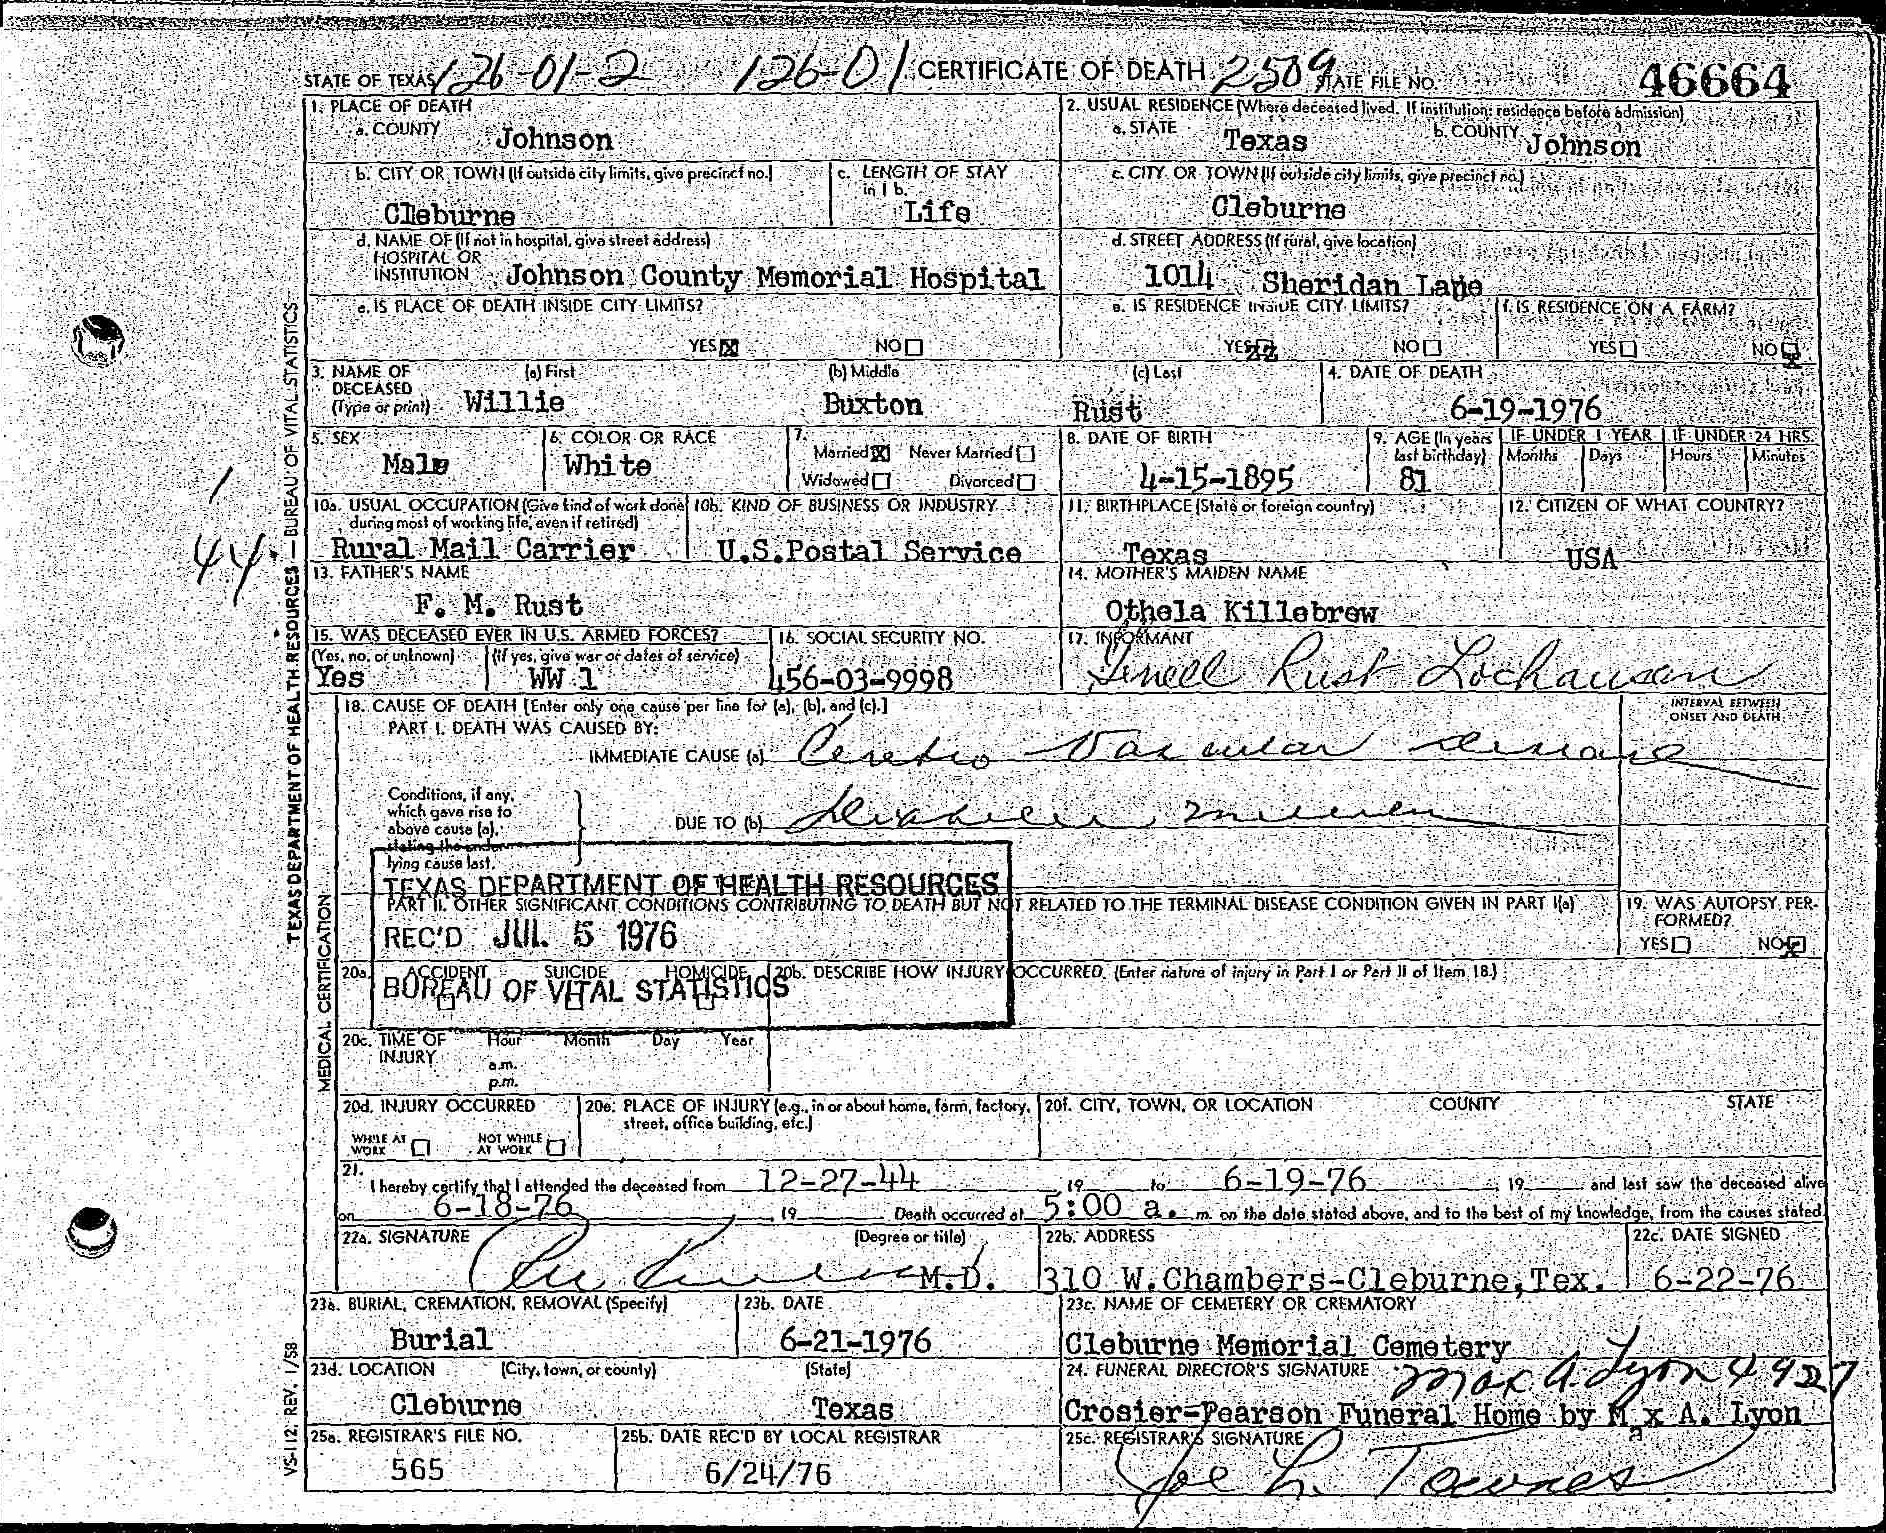 STATE OF TEXAS 126-01-2 126-01 CERTIFICATE OF DEATH 2509 STATE FILE NO. 46664
1. PLACE OF DEATH
a. COUNTY Johnson
2. USUAL RESIDENCE (Where deceased lived. If institution: residence before admission)
a. STATE Texas b. COUNTY Johnson
b. CITY OR TOWN (If outside city limits, give precinct no.) Cleburne
c. LENGTH OF STAY in 1 b. Life
c. CITY OR TOWN (If outside city limits, give precinct no.) Cleburne
d. NAME OF (If not in hospital, give street address)
HOSPITAL OR
INSTITUTION Johnson County Memorial Hospital
d. STREET ADDRESS (If rural, give location)
1014 Sheridan Lane
e. IS PLACE OF DEATH INSIDE CITY LIMITS?
YES X NO
e. IS RESIDENCE INSIDE CITY LIMITS?
YES NO
f. IS RESIDENCE ON A FARM?
YES NO X
3. NAME OF DECEASED (Type or print)
(a) First Willie
(b) Middle Buxton
(c) Last Rust
4. DATE OF DEATH
6-19-1976
5. SEX
Male
6. COLOR OR RACE
White
7.
Married X Never Married
Widowed Divorced
8. DATE OF BIRTH
4-15-1895
9. AGE (In years last birthday)
81
IF UNDER 1 YEAR IF UNDER 24 HRS.
Months Days Hours Minutes
10a. USUAL OCCUPATION (Give kind of work done during most of working life, even if retired)
Rural Mail Carrier
10b. KIND OF BUSINESS OR INDUSTRY
U.S.Postal Service
11. BIRTHPLACE (State or foreign country)
Texas
12. CITIZEN OF WHAT COUNTRY?
USA
13. FATHER'S NAME
F. M. Rust
14. MOTHER'S MAIDEN NAME
Othela Killebrew
15. WAS DECEASED EVER IN U.S. ARMED FORCES?
(Yes, no, or unknown) (If yes, give war or dates of service)
Yes WW 1
16. SOCIAL SECURITY NO.
456-03-9998
17. INFORMANT
Rust Lochausen
18. CAUSE OF DEATH [Enter only one cause per line for (a), (b), and (c).]
INTERVAL BETWEEN ONSET AND DEATH
PART I. DEATH WAS CAUSED BY:
IMMEDIATE CAUSE (a) Cerebro Vascular disease
Conditions, if any,
which gave rise to
above cause (a),
stating the under-
lying cause last.
DUE TO (b)
TEXAS DEPARTMENT OF HEALTH RESOURCES
REC'D JUL 5 1976
BUREAU OF VITAL STATISTICS
PART II. OTHER SIGNIFICANT CONDITIONS CONTRIBUTING TO DEATH BUT NOT RELATED TO THE TERMINAL DISEASE CONDITION GIVEN IN PART I(a)
19. WAS AUTOPSY PERFORMED?
YES NO X
20a. ACCIDENT SUICIDE HOMICIDE
20b. DESCRIBE HOW INJURY OCCURRED. (Enter nature of injury in Part I or Part II of Item 18.)
20c. TIME OF INJURY Hour Month Day Year
a.m.
p.m.
20d. INJURY OCCURRED
WHILE AT WORK NOT WHILE AT WORK
20e. PLACE OF INJURY (e.g., in or about home, farm, factory, street, office building, etc.)
20f. CITY, TOWN, OR LOCATION COUNTY STATE
21.
I hereby certify that I attended the deceased from 12-27-44 19 to 6-19-76 19 and last saw the deceased alive
on 6-18-76, 19 Death occurred at 5:00 a. m. on the date stated above, and to the best of my knowledge, from the causes stated.
22a. SIGNATURE (Degree or title)
M.D.
22b. ADDRESS
310 W.Chambers-Cleburne,Tex.
22c. DATE SIGNED
6-22-76
23a. BURIAL, CREMATION, REMOVAL (Specify)
Burial
23b. DATE
6-21-1976
23c. NAME OF CEMETERY OR CREMATORY
Cleburne Memorial Cemetery
23d. LOCATION (City, town, or county) (State)
Cleburne Texas
24. FUNERAL DIRECTOR'S SIGNATURE Max A. Lyon 4927
Crosier-Pearson Funeral Home by Max A. Lyon
25a. REGISTRAR'S FILE NO.
565
25b. DATE REC'D BY LOCAL REGISTRAR
6/24/76
25c. REGISTRAR'S SIGNATURE
Joe L. Townes
TEXAS DEPARTMENT OF HEALTH RESOURCES — BUREAU OF VITAL STATISTICS
MEDICAL CERTIFICATION
VS-112, REV. 1/58
1
44